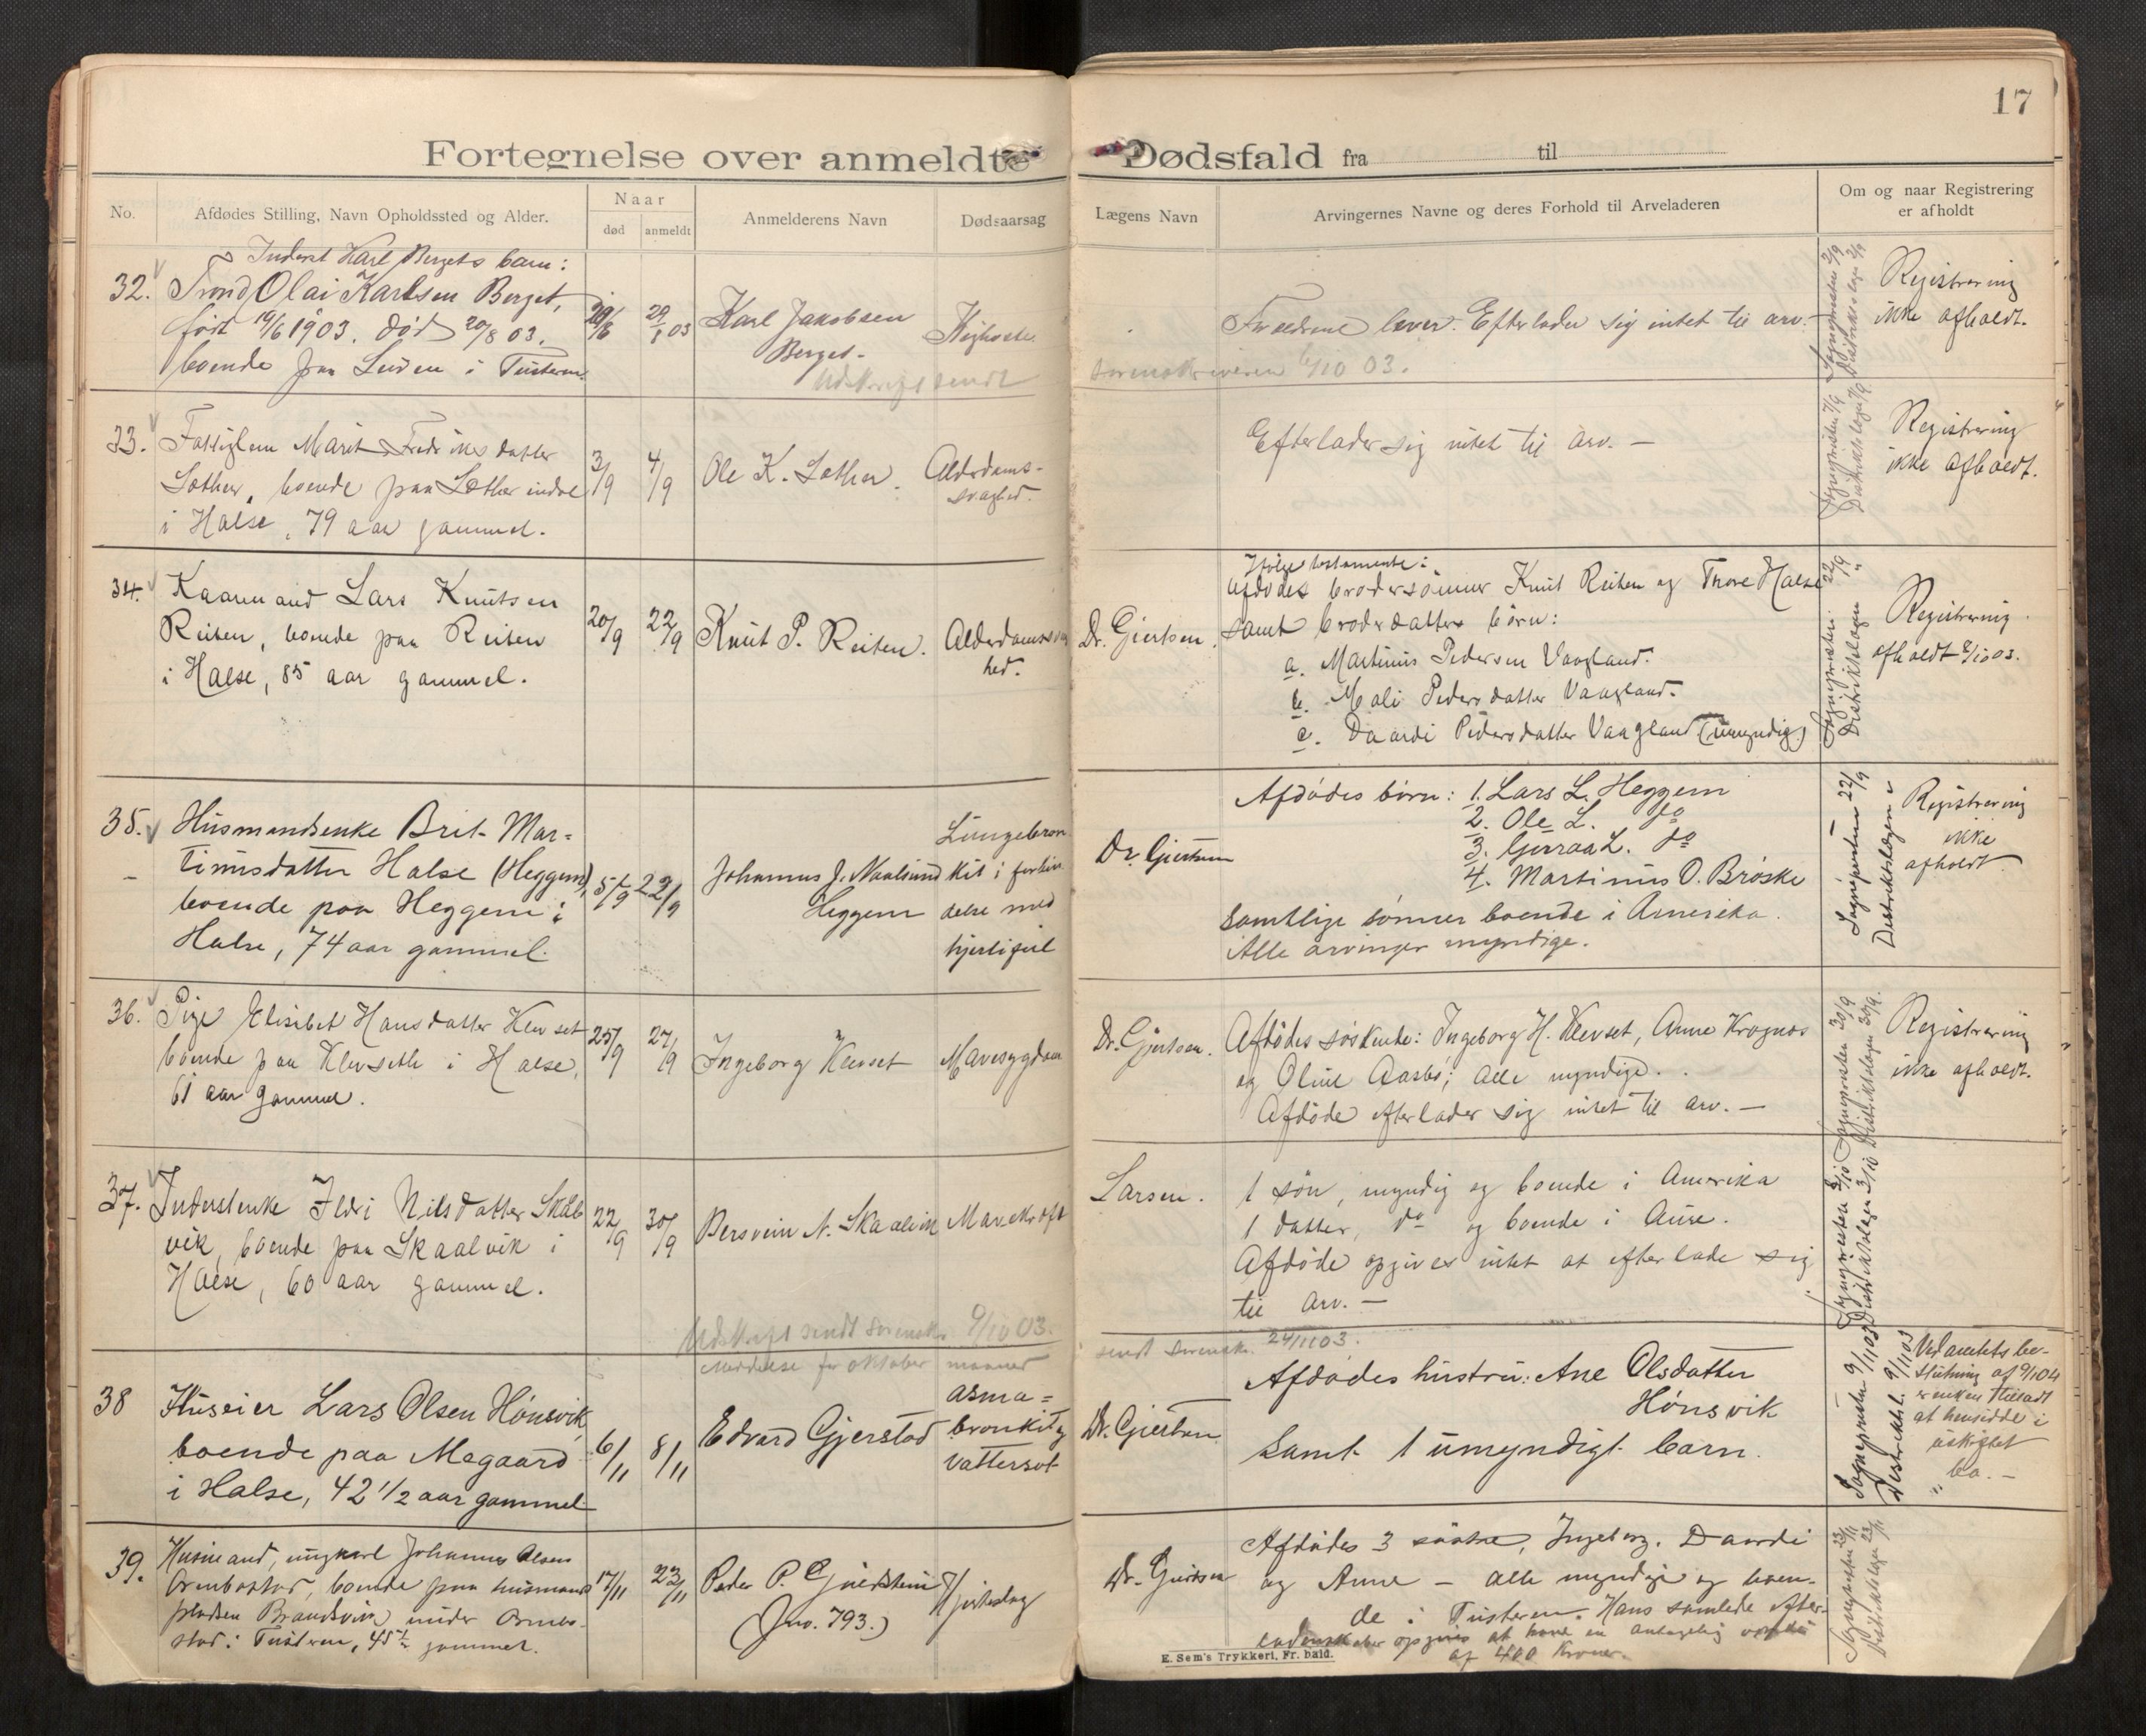 17
Fortegnelse over anmeldte Dødsfald fra til
No.
Afdødes Stilling, Navn Opholdssted og Alder.
Naar
død
anmeldt
Anmelderens Navn
Dødsaarsag
Lægens Navn
Arvingernes Navne og deres Forhold til Arveladeren
Om og naar Registrering
er afholdt
32.
Inderst Karl Bergets barn:
Trond Olai Karlsen Berget,
født 14/6 1903. død 20/8 03.
boende paa Leiren i Tusteren.
20/8
29/8 03
Karl Jakobsen
Berget.
Kighoste.
Forældrene lever. Efterlader sig intet til arv.
Sogneprsten 2/9
Distriktslægen 2/9
Registrering
ikke afholdt.
Udskrift sendt
sorenskriveren 6/10 03.
33.
Fattiglem Marit Fredriksdatter
Sæther, boende paa Sæther indre
i Halse, 79 aar gammel.
3/9
4/9
Ole K. Sæther.
Alderdoms-
svaghed.
Efterlader sig intet til arv. —
Registrering
ikke afholdt.
34.
Kaarmand Lars Knutsen
Reiten, boende paa Reiten
i Halse, 85 aar gammel.
20/9
22/9
Knut P. Reiten.
Alderdomssvag
hed.
Dr. Giertsen.
Ifølge testamente:
Afdødes brodersønner Knut Reiten og Thore Halse
samt broderdatters børn:
a. Martinus Pedersen Vaagland.
b. Mali Pedersdatter Vaagland.
c. Daardi Pedersdatter Vaagland (umyndig)
Sognepresten 22/9
Distriktslægen "
Registrering
afholdt 8/10 03.
35.
Husmandsenke Brit Mar-
tinusdatter Halse (Heggem),
boende paa Heggem i
Halse, 74 aar gammel.
15/9
22/9
Johannes J. Naalsund
Heggem
Lungebron
kit i forbin
delse med
hjertefeil
Dr. Giertsen
Afdødes børn: 1. Lars L. Heggem
2. Ole L. do
3. Gurraa L. do
4. Martinus O. Brøske
samtlige sønner boende i Amerika.
Alle arvinger myndige.
Sognepresten 22/9
Distriktslægen "
Registrering
ikke
afholdt
36.
Pige Elisibet Hansdatter Klevset
boende paa Klevseth i Halse,
61 aar gammel.
25/9
27/9
Ingeborg Klevset
Mavesygdom
Dr. Gjertsen.
Afdødes søskende: Ingeborg H. Klevset, Anne Krognes
og Oline Aasbø; alle myndige.
Afdøde efterlader sig intet til arv. —
Sognepresten 30/9
Distriktslægen 30/9.
Registrering
ikke afholdt.
37.
Inderstenke Ildri Nilsdatter Skaal
vik, boende paa Skaalvik i
Halse, 60 aar gammel.
22/9
30/9
Bersvein N. Skaalvik
Mavekræft
Larsen.
1 søn, myndig og boende i Amerika
1 datter, do og boende i Aure.
Afdøde opgives intet at efterlade sig
til arv. —
Sognepresten 3/10
Distriktslægen 3/10
Udskrift sendt sorenskr. 9/10 03.
Meddelelse for oktober maaned
sendt sorenskr. 24/11 03.
38
Huseier Lars Olsen Hønsvik,
boende paa Megaard
i Halse, 42 1/2 aar gammel
6/11
8/11
Edvard Gjerstad
asma-
bronkit og
vattersot
Dr. Giertsen
Afdødes hustru: Ane Olsdatter
Hønsvik
samt 1 umyndigt barn.
Sognepresten 9/11 03
Distriktsl. 9/11 03
Ved amtets be-
slutning af 9/1 04
er enken tilladt
at hensidde i
uskiftet
bo. —
39.
Husmand, ungkarl Johannes Olsen
Ormbostad, boende paa husmands
pladsen Brandsvik under Ormbo-
stad i Tusteren, 45 1/2 gammel.
17/11
23/11
Peder P. Gjerdstein
(Jno. 793.)
Hjerteslag
Dr. Giertsen
Afdødes 3 søstre, Ingeborg, Daardi
og Anne — alle myndige og boen-
de i Tusteren. Hans samlede efter-
ladenskaber opgives at have en antagelig værdi
af 400 kroner.
Sognepresten 23/11
Distriktslægen 23/11
E. Sem's Trykkeri, Fr. hald.